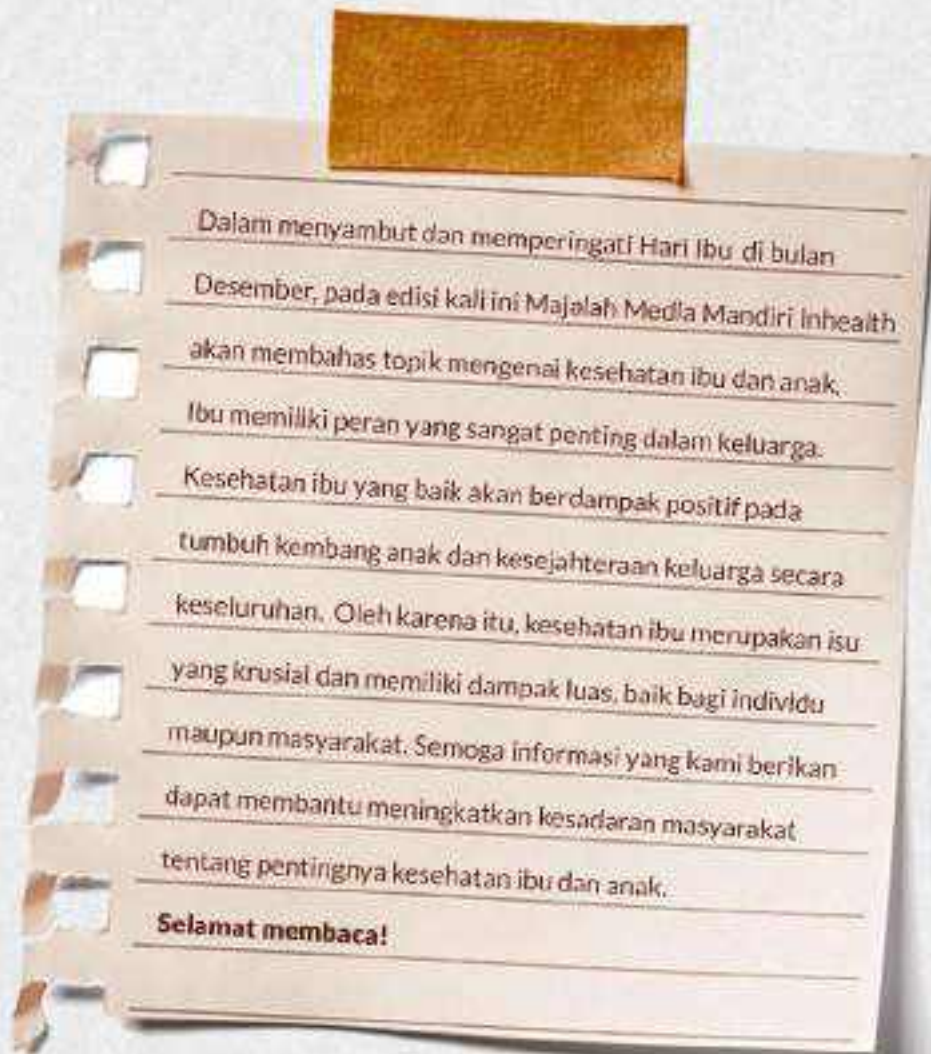 Dalam menyambut dan memperingati Hari Ibu di bulan
Desember, pada edisi kali ini Majalah Media Mandiri Inhealth
akan membahas topik mengenai kesehatan ibu dan anak.
Ibu memiliki peran yang sangat penting dalam keluarga.
Kesehatan ibu yang baik akan berdampak positif pada
tumbuh kembang anak dan kesejahteraan keluarga secara
keseluruhan. Oleh karena itu, kesehatan ibu merupakan isu
yang krusial dan memiliki dampak luas, baik bagi individu
maupun masyarakat. Semoga informasi yang kami berikan
dapat membantu meningkatkan kesadaran masyarakat
tentang pentingnya kesehatan ibu dan anak.
Selamat membaca!